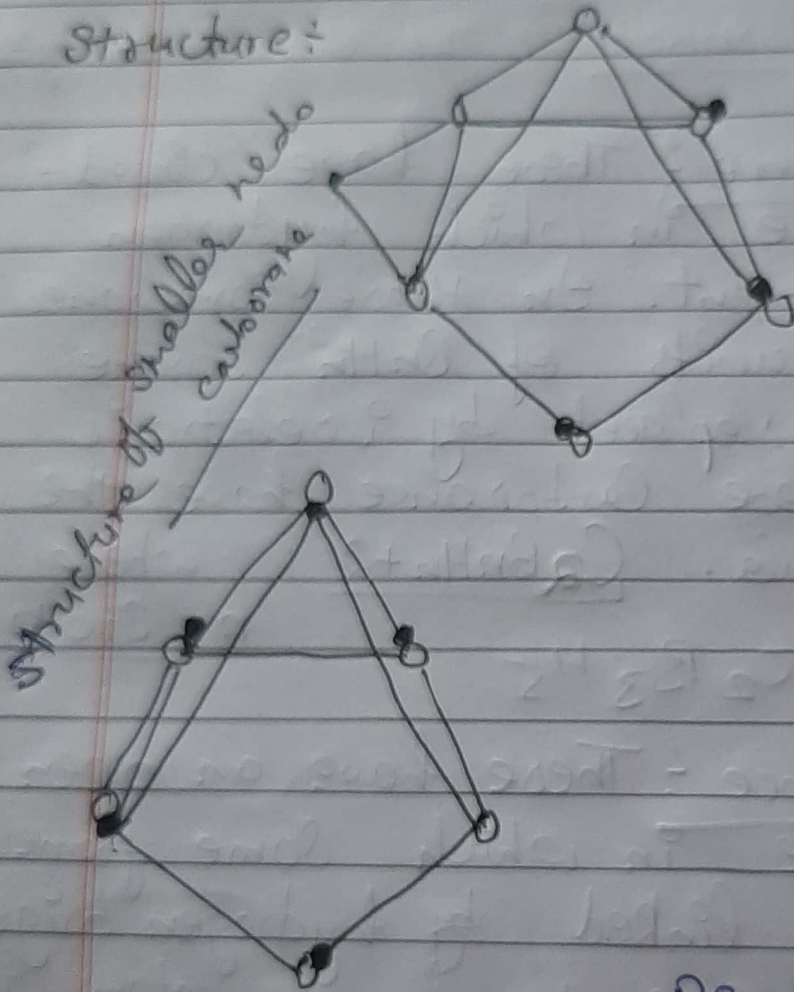 Structure :
Structure of smaller nedo
carborane